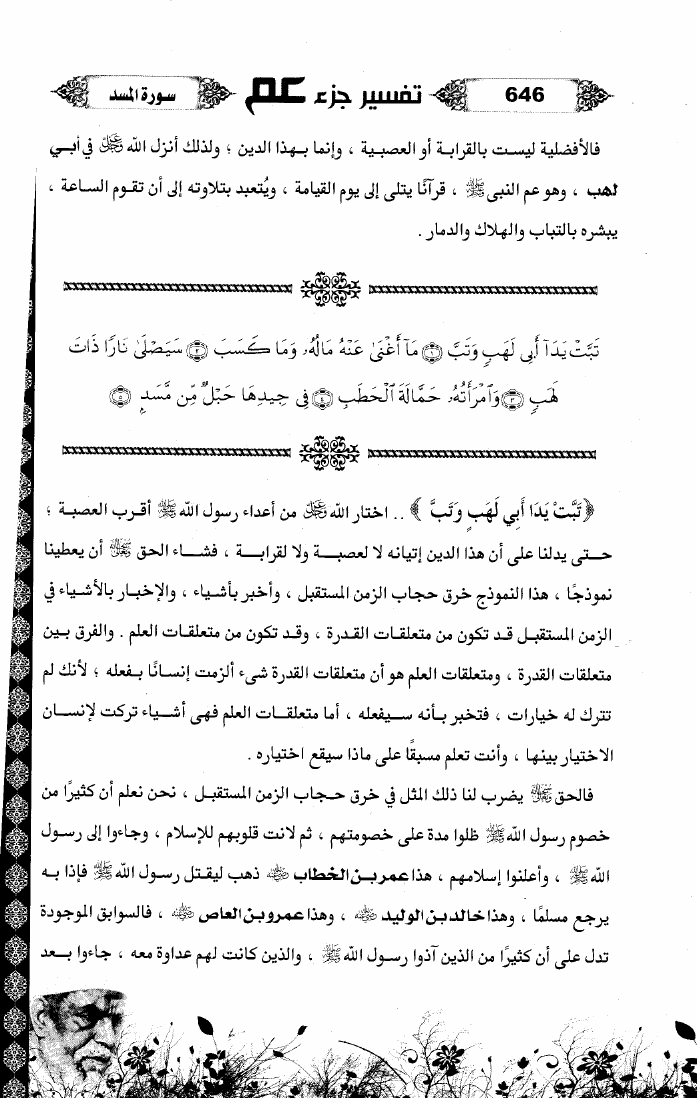 646
تفسير جزء عم
سورة المسد
فالأفضلية ليست بالقرابة أو العصبية ، وإنما بهذا الدين ؛ ولذلك أنزل الله ﷻ في أبي
لهب ، وهو عم النبى ﷺ ، قرآنًا يتلى إلى يوم القيامة ، ويُتعبد بتلاوته إلى أن تقوم الساعة ،
يبشره بالتباب والهلاك والدمار .
تَبَّتْ يَدَآ أَبِى لَهَبٍ وَتَبَّ ۝١ مَآ أَغْنَىٰ عَنْهُ مَالُهُۥ وَمَا كَسَبَ ۝٢ سَيَصْلَىٰ نَارًا ذَاتَ
لَهَبٍ ۝٣ وَٱمْرَأَتُهُۥ حَمَّالَةَ ٱلْحَطَبِ ۝٤ فِى جِيدِهَا حَبْلٌ مِّن مَّسَدٍۭ ۝٥
﴿ تَبَّتْ يَدَا أَبِي لَهَبٍ وَتَبَّ ﴾ .. اختار الله ﷻ من أعداء رسول الله ﷺ أقرب العصبة ؛
حتى يدلنا على أن هذا الدين إتيانه لا لعصبة ولا لقرابة ، فشاء الحق ﷻ أن يعطينا
نموذجًا ، هذا النموذج خرق حجاب الزمن المستقبل ، وأخبر بأشياء ، والإخبار بالأشياء في
الزمن المستقبل قد تكون من متعلقات القدرة ، وقد تكون من متعلقات العلم . والفرق بين
متعلقات القدرة ، ومتعلقات العلم هو أن متعلقات القدرة شىء ألزمت إنسانًا بفعله ؛ لأنك لم
تترك له خيارات ، فتخبر بأنه سيفعله ، أما متعلقات العلم فهى أشياء تركت لإنسان
الاختيار بينها ، وأنت تعلم مسبقًا على ماذا سيقع اختياره .
فالحق ﷻ يضرب لنا ذلك المثل في خرق حجاب الزمن المستقبل ، نحن نعلم أن كثيرًا من
خصوم رسول الله ﷺ ظلوا مدة على خصومتهم ، ثم لانت قلوبهم للإسلام ، وجاءوا إلى رسول
الله ﷺ ، وأعلنوا إسلامهم ، هذا عمر بن الخطاب رضي الله عنه ذهب ليقتل رسول الله ﷺ فإذا به
يرجع مسلمًا ، وهذا خالد بن الوليد رضي الله عنه ، وهذا عمرو بن العاص رضي الله عنه ، فالسوابق الموجودة
تدل على أن كثيرًا من الذين آذوا رسول الله ﷺ ، والذين كانت لهم عداوة معه ، جاءوا بعد